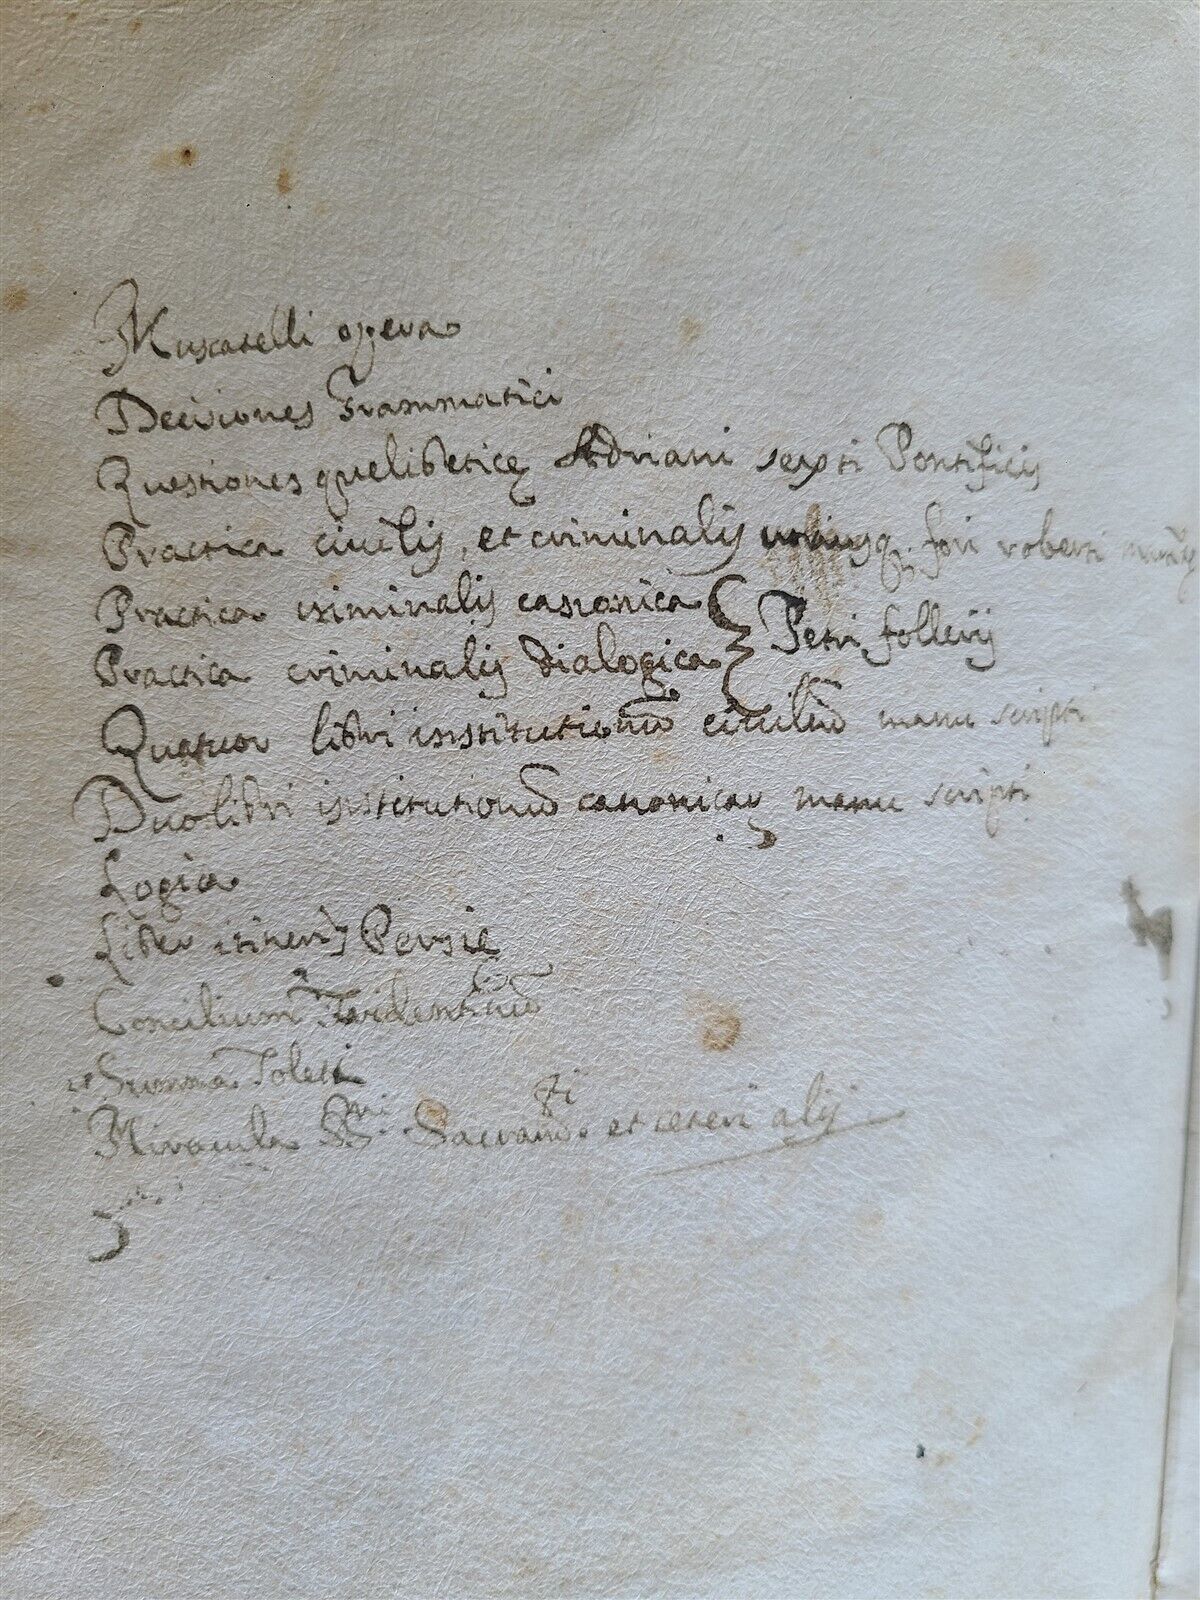 Muscatelli opera
Decisiones Grammatici
Questiones quelibeticę Adriani sexti Pontificis
Practica civilis, et criminalis utriusq. fori roberti
Practica criminalis canonica
Practica criminalis dialogica } Petri follerij
Quatuor libri institutionũ civiliũ manu scripti
Duo libri institutionũ canonicar manu scripti
Logica
Liber itineris Persię
Concilium Tridentinũ
Summa Toleti
Miracula SSmi. Sacramti et ceteri alij